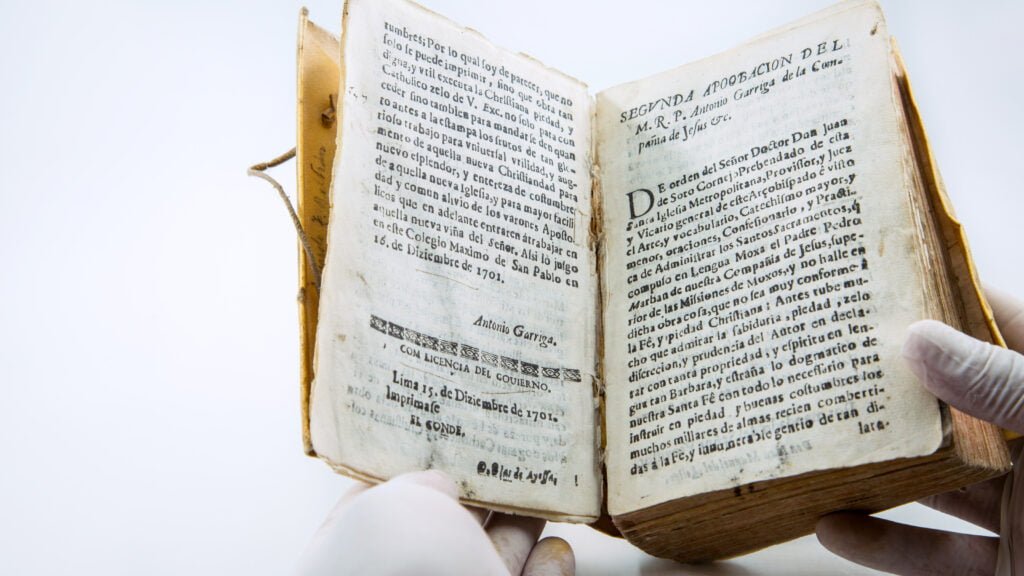 tumbres; Por lo qual soy de parecer, que no
solo se puede imprimir, sino que obra tan
digna, y vtil executa la Christiana piedad, y
Catholico zelo de V. Exc. no solo para con
ceder sino tambien para mandar se den quan
ro antes a la estampa los frutos de tan glo
rioso trabajo para vniuersal vtilidad, y aug-
mento de aquella nueva Christiandad para
nuevo esplendor, y entereza de costumbre
de aquella nueva Iglesia, y para mayor facili
dad y comun alivio de los varones Aposto
licos que en adelante entraren a trabajar en
aquella nueva viña del Señor. Asi lo juzgo
en este Colegio Maximo de San Pablo en
16. de Diziembre de 1701.
Antonio Garriga.
COM LICENCIA DEL GOUIERNO.
Lima 15. de Diziembre de 1701.
Imprimase
EL CONDE.
D. Blas de Ayessa,
SEGVNDA APOQBACION DEL
M. R. P. Antonio Garriga de la Com-
pañia de Jesus &c.
DE orden del Señor Doctor Don Juan
de Soto Cornejo Prebendado de esta
Santa Iglesia Metropolitana, Provissor, y Juez
y Vicario general de este Arçobispado é visto
el Arte, y vocabulario, Catechismo mayor, y
menor, oraciones, Confesionario, y Practi-
ca de Administrar los Santos Sacramentos, q̃
compuso en Lengua Moxa el Padre Pedro
Marban de nuestra Compañia de Jesus, supe-
rior de las Missiones de Moxos, y no halle en
dicha obra cosa, que no sea muy conforme à
la Fè, y piedad Christiana: Antes tube mu-
cho que admirar la sabiduria, piedad, zelo
discrecion, y prudencia del Autor en decla-
rar con tanta propriedad, y espiritu en len-
gua tan Barbara, y estraña lo dogmatico de
nuestra Santa Fè con todo lo necessario para
instruir en piedad y buenas costumbres los
muchos millares de almas recien comberti-
das á la Fè, y innumerable gentio de tan di
lara.